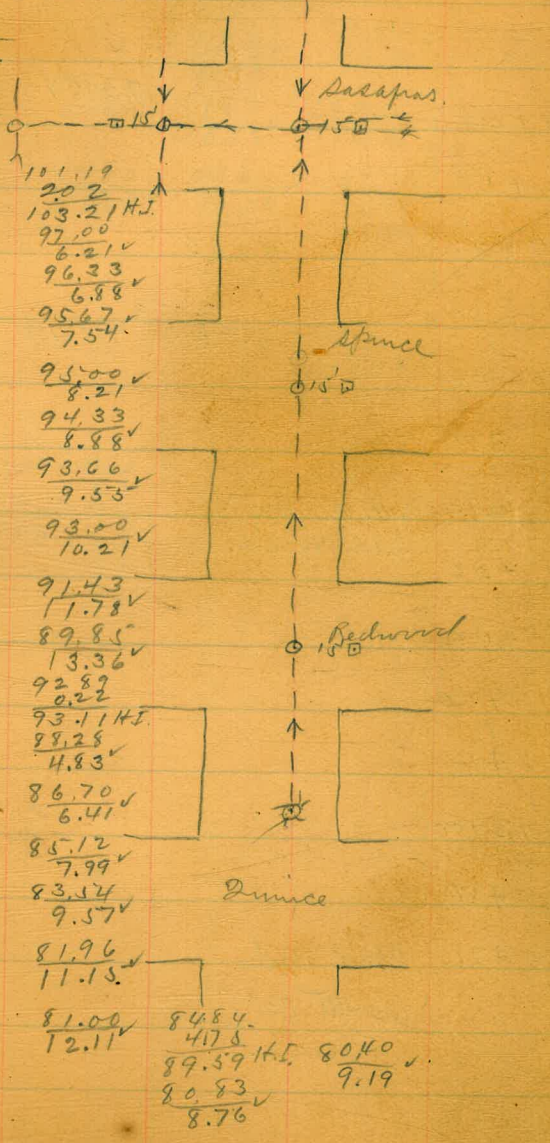 Sasafras
15'
15'
101.19
2.02
103.21 H.I.
97.00
6.21 ✓
96.33
6.88 ✓
95.67
7.54 ✓
Spruce
95.00
8.21 ✓
15'
94.33
8.88 ✓
93.66
9.55 ✓
93.00
10.21 ✓
91.43
11.78 ✓
89.85
13.36 ✓
Redwood
15
92.89
0.22
93.11 H.I.
88.28
4.83 ✓
86.70
6.41 ✓
85.12
7.99 ✓
83.54
9.57 ✓
Quince
81.96
11.15 ✓
81.00
12.11 ✓
84.84
4.75
89.59 H.I.
80.83
8.76 ✓
80.40
9.19 ✓